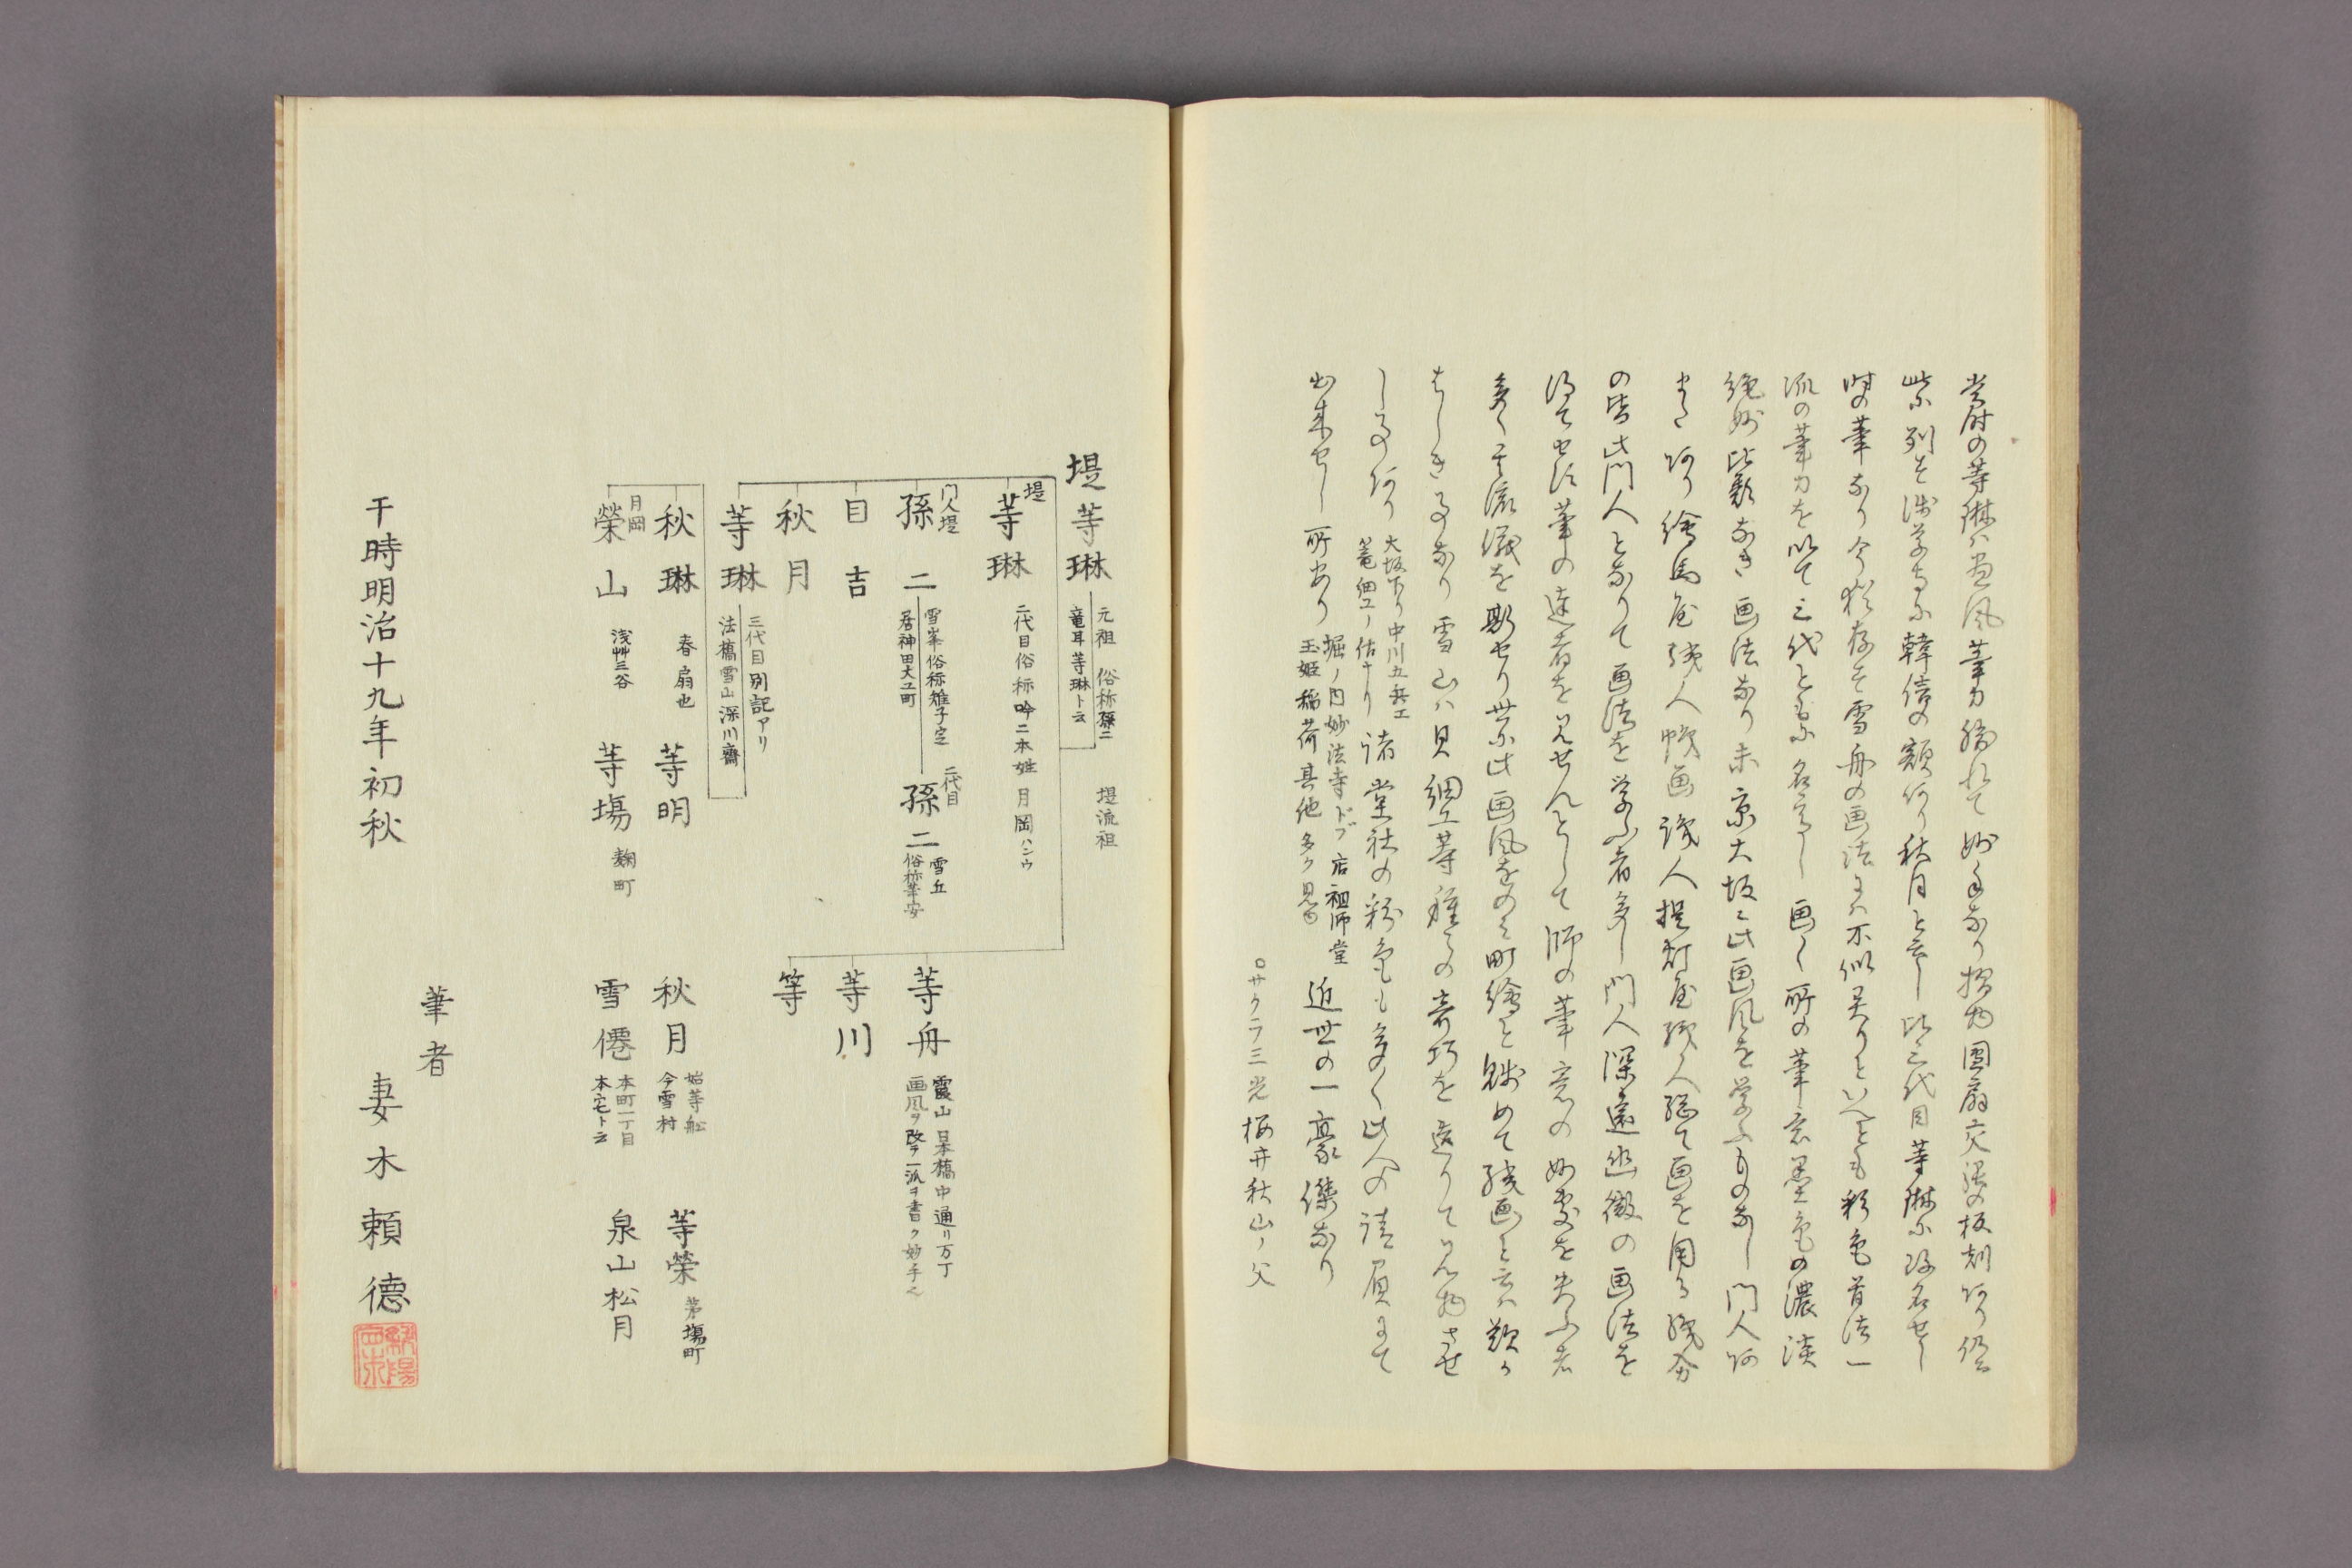 当時の等琳は画風筆力勝れて妙手なり摺物団扇交張の板刻あり俗
此に列す浅草寺に韓信の額あり秋月と云し比三代目等琳に改名せし
時の筆なり今猶存す雪舟の画法には不似異なりといへども彩色骨法一
流の筆力を以て三代ともに名高し画く所の筆意墨色の濃淡
絶妙比類なき画法なり末京大坂に此画風を学ふものなし門人あ
また有り絵馬屋職人幟画職人提灯屋職人総て画を用る職分
の皆此門人となりて画法を学ふ者多し門人深遠幽微の画法を
得て其筆の達者を見せんとして師の筆意の妙処を失ふ者
多く其流儀を斯せり世に此画風をのみ町絵と賤めて職画と云は歎か
はしき事なり雪山は貝細工等種々の奇巧を造りて見物させ
し事あり
大坂下り中川五兵エ
篭細工ノ佑ナリ
諸堂社の彩色も多く此人の請負にて
出来せし所あり
堀ノ内妙法寺ドブ店祖師堂
玉姫稲荷其他多ク見ユ
近世の一豪傑なり
○サクラ三光桜井秋山ノ父
堤等琳
元祖 俗称孫二 堤流祖
竜耳等琳ト云
堤
等琳
二代目俗称吟二本姓月岡ハンウ
門人堤
孫二
雪峯俗称雉子定
居神田大工町
二代目
孫二
雪丘
俗称筆安
目吉
秋月
等琳
三代目別記アリ
法橋雪山深川斎
等舟
霞山 日本橋中通リ万丁
画風ヲ改テ一派ヲ書ク妙手也
等川
等
秋琳
春扇也
等明
秋月
始等舩
今雪村
等榮
茅場町
月岡
榮山
浅艸三谷
等場
麹町
雪僊
本町一丁目
本宅ト云
泉山松月
干時明治十九年初秋
筆者
妻木頼徳